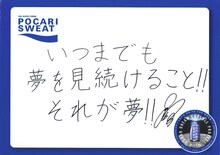 POCARI
SWEAT
いつまでも
夢を見続けること!!
それが夢!!